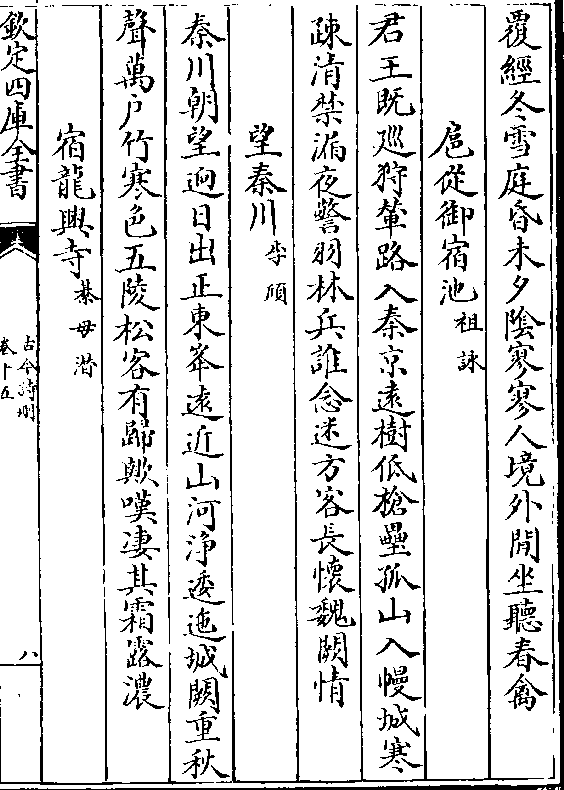 覆經冬雪庭昏未夕陰寥寥人境外閒坐聽春禽
扈從御宿池 祖詠
君王既巡狩輦路入秦京遠樹低槍壘孤山入幔城寒
疎清禁漏夜警羽林兵誰念迷方客長懷魏闕情
望秦川 李頎
秦川朝望逈日出正東峯遠近山河淨逶迤城闕重秋
聲萬戶竹寒色五陵松客有歸歟嘆凄其霜露濃
宿龍興寺 綦毋潛
欽定四庫全書
古今詩刪
卷十五
八